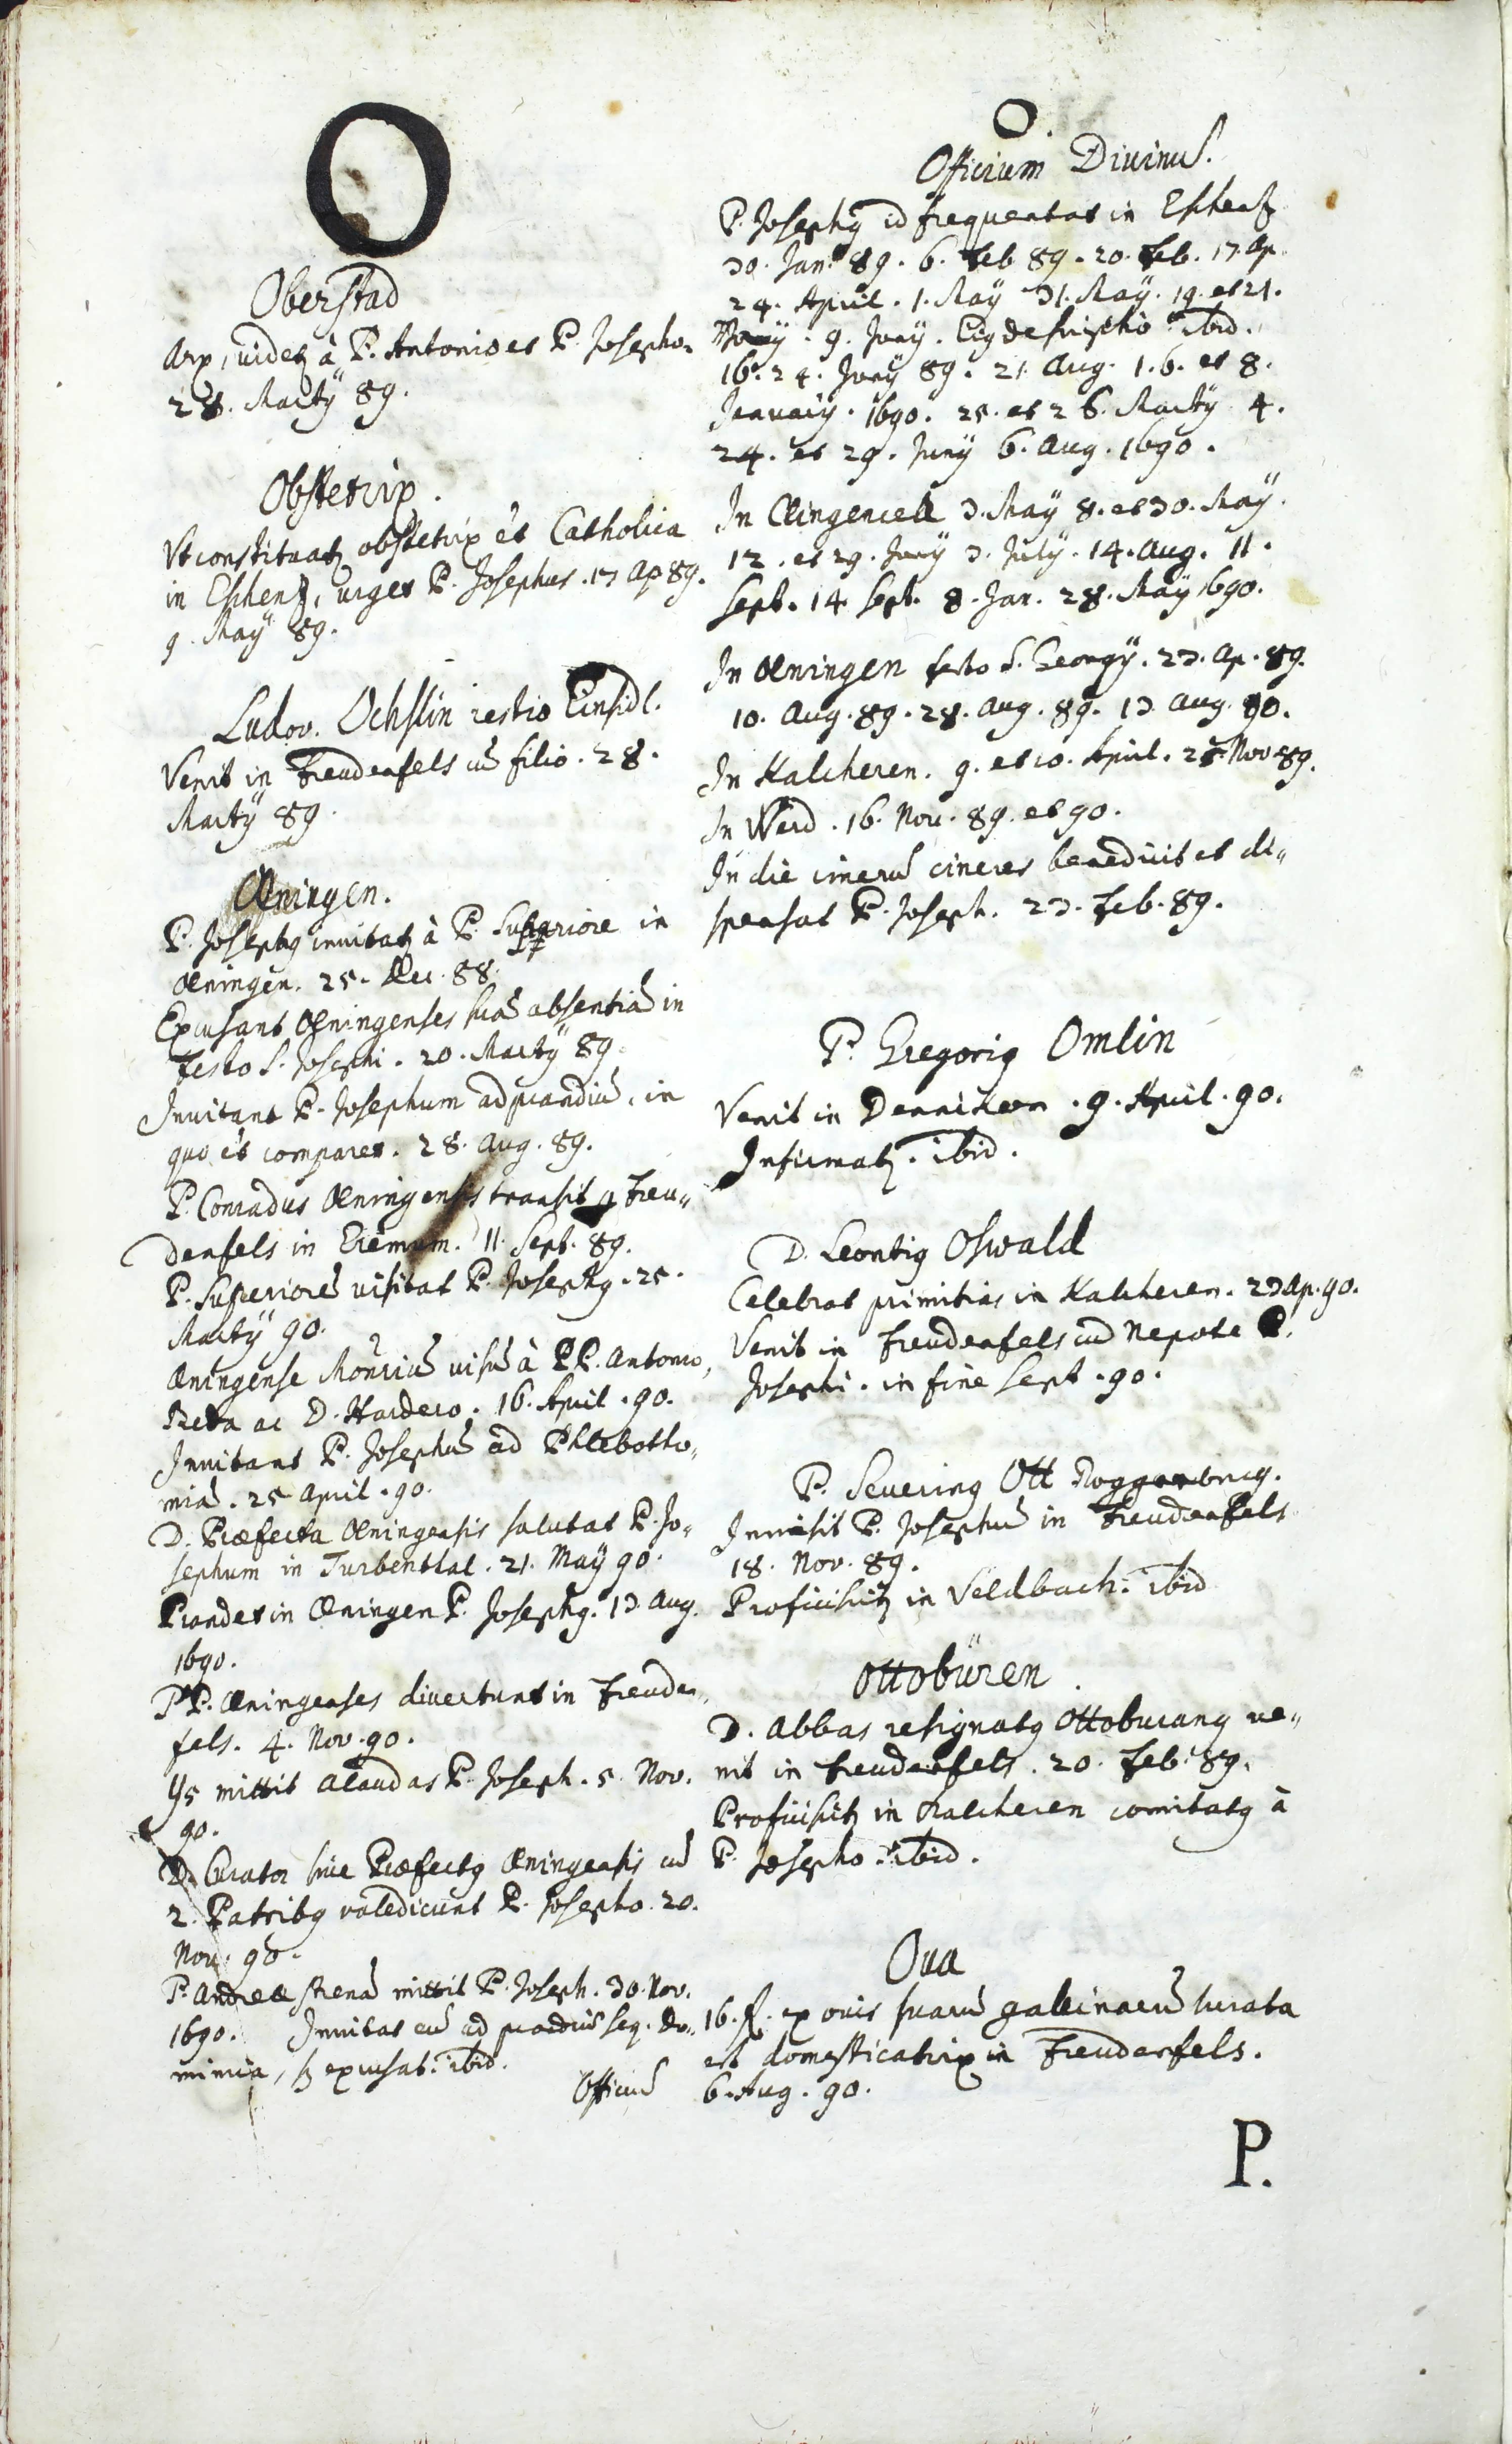 O
Oberstad
Arx, videtur à P. Antonio et P. Josepho.
28. Martÿ 89.
Obstetrix.
Ut constituatur obstetrix et Catholica
in Eschenz, urget P. Josephus. 17 Ap 89.
9. Maÿ 89.
Ludov. Ochslin restio Einsidl.
Venit in Freudenfels cū filio. 28.
Martÿ 89.
Œningen.
P. Josephus invitatur à P. Superiore in
Œningen. 25. Dec. 88.
Excusant Œningenses suā absentiā in
festo S. Josephi. 20. Martÿ 89.
Invitant P. Josephum ad prandiū, in
quo et comparet. 28. Aug. 89.
P. Conradus Œningensis transit Freu„
denfels in Eremum. 11. Sept. 89.
P. Superiorē visitat P. Josephus. 25.
Martÿ 90.
Œningense Monriū visū à PP. Antonio,
ac D. Hardero. 16. April. 90.
Invitant P. Josephū ad Phlebotho„
miā. 25 April. 90.
D. Præfecta Œningensis salutat P. Jo„
sephum in Turbenthal. 21. Maÿ 90.
Prandet in Œningen P. Josephus. 13 Aug.
1690.
PP. Œningenses divertunt in Freuden„
fels. 4. Nov. 90.
Ys mittit alaudas P. Joseph. 5. Nov.
90.
D. Curator sive Præfectus Œningensis cū
2. Patribus valedicunt P. Josepho. 20.
Nov. 90.
P. Andreæ strenā mittit P. Joseph. 30. Nov.
1690. Invitat eū ad prandiū seq. do„
minica, sed excusat. ibid.
Officiū
O.
Officium Divinū.
P. Josephus id frequentat in Eschenz
30. Jan. 89. 6. Feb 89. 20. Feb. 17. Ap.
24. April. 1. Maÿ 31. Maÿ. 19. et 21.
9. Junÿ. Eius descriptio. ibid.
16. 24. Junÿ 89. 21. Aug. 1. 6. et 8.
Januarÿ. 1690. 25. et 26. Martÿ 4.
24. et 29. Junÿ 6. Aug. 1690.
In Clingencell 3. Maÿ 8. et 30. Maÿ.
12. et 29. Junÿ 3. Julÿ. 14. Aug. 11.
Sept. 14 Sept. 8. Jan. 28. Maÿ 1690.
In Œningen festo S. Georgÿ. 23. Ap. 89.
10. Aug. 89. 28. Aug. 89. 13 Aug. 90.
In Kalcheren. 9. et 10. April. 25. Nov 89.
In Werd. 16. Nov. 89. et 90.
In die cinerū cineres benedicit et di„
spensat P. Joseph. 23. Feb. 89.
P. Gregorius Omlin
Venit in Dennikon. 9. April. 90.
Infirmatur. ibid.
D. Leontius Oswald
Celebrat primitias in Kalcheren. 23 Ap. 90.
Venit in Freudenfels cū Nepote P.
Josephi. in fine Sept. 90.
P. Severinus Ott Roggenburg.
Invisit P. Josephū in Freudenfels
18. Nov. 89.
Proficiscitur in Veldbach. ibid
Ottobüren
D. Abbas resignatus Ottoburanus ve„
nit in Freudenfels. 20. Feb. 89.
Proficiscitur in Kalcheren comitatus à
P. Josepho. ibid.
Ova
16. fl. ex ovis suarū gallinarū lucrata
est domesticatrix in Freudenfels.
6. Aug. 90.
P.